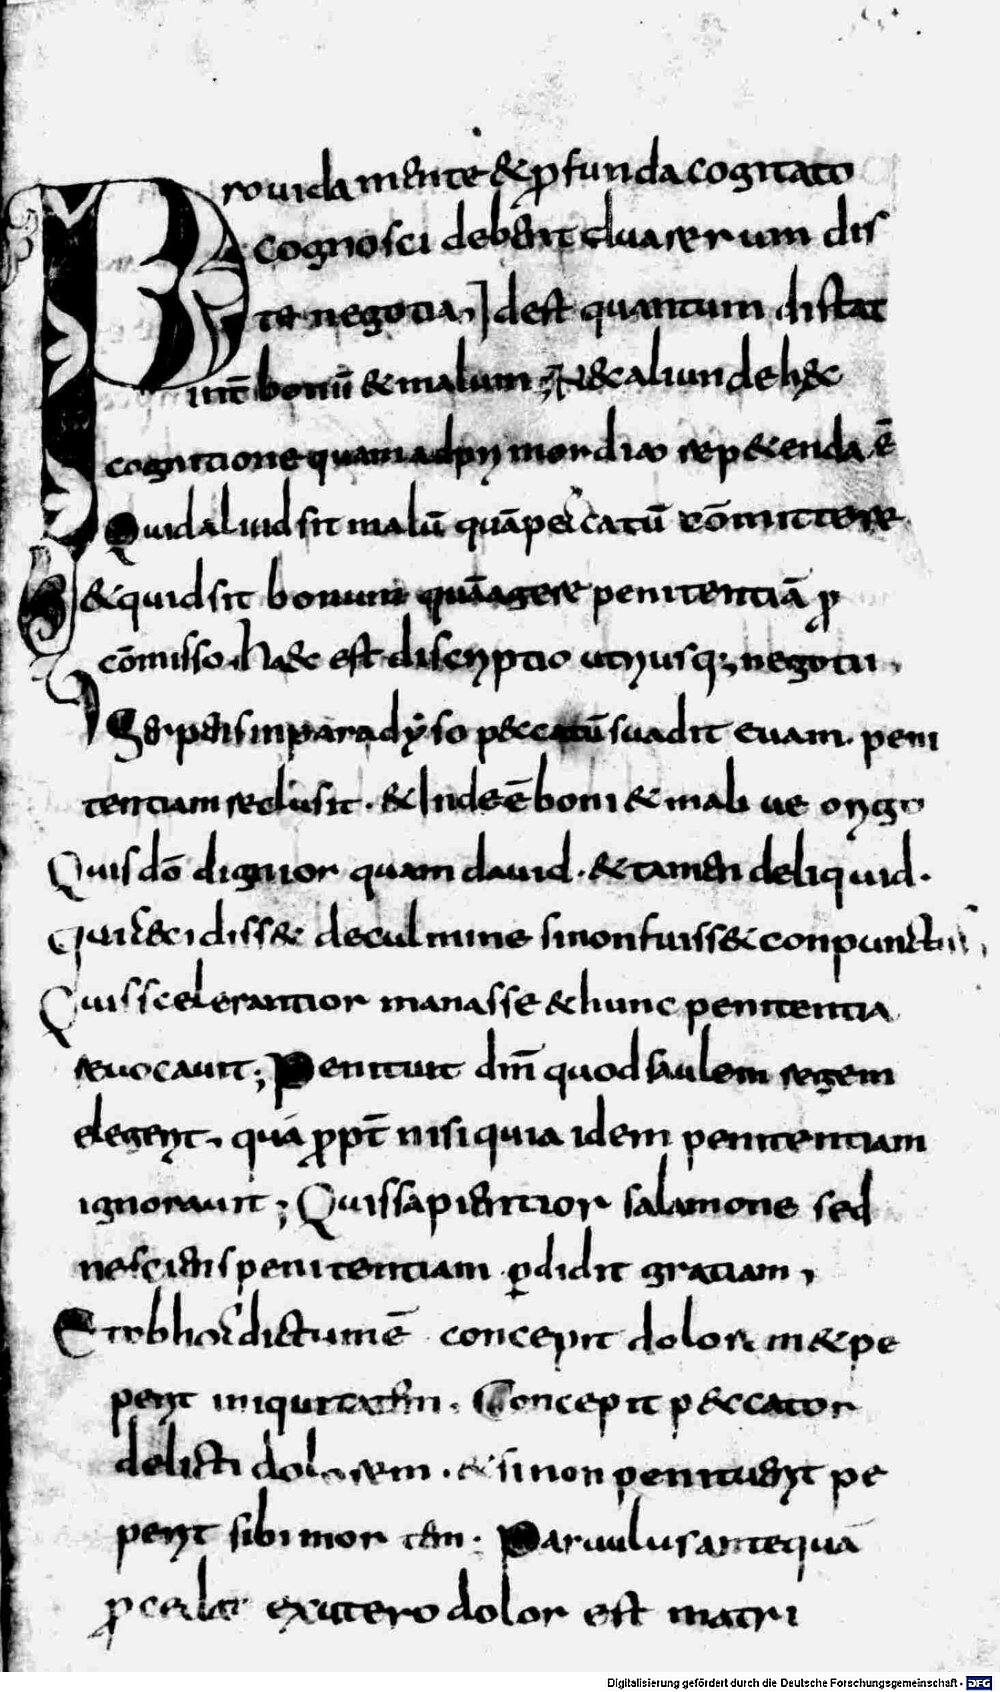 Prouida mente & ꝓfunda cogitato
cognosci debent duarerum dis
te negotia, Idest quantum distat
int̄ bonū & malum; Nec aliunde hęc
cognitione quam ad primordia repetenda ē
Quid aliud sit malū quā peccatū cōmittere
& quid sit bonum quā agere penitentiā ꝓ
cōmisso. Haec est discriptio utriusq; negotii,
Serpens inparadyso peccatū suadit euam. peni
tentiam reclusit. & Inde ē boni & mali ue origo
Quis dō dignior quam dauid. & tamen deliquid.
Qui recidisset deculmine sinonfuisset conpunctus,
Quis scelerantior manasse & hunc penitentia
reuocauit; Penituit dm̄ quod saulem regem
elegerit, quá ꝓpt̄ nisi quia idem penitentiam
ignorauit; Quis sapientior salamone sed
nesciens penitentiam ꝑdidit gratiam,
Et iob hoc dictum ē concepit dolorem & pe
perit iniquitatem. Concepit peccator
delicti dolorem. & sinon penituerit pe
perit sibi mortem. Paruulus antequā
ꝓcedat exutero dolor est matri
Digitalisierung gefördert durch die Deutsche Forschungsgemeinschaft - DFG